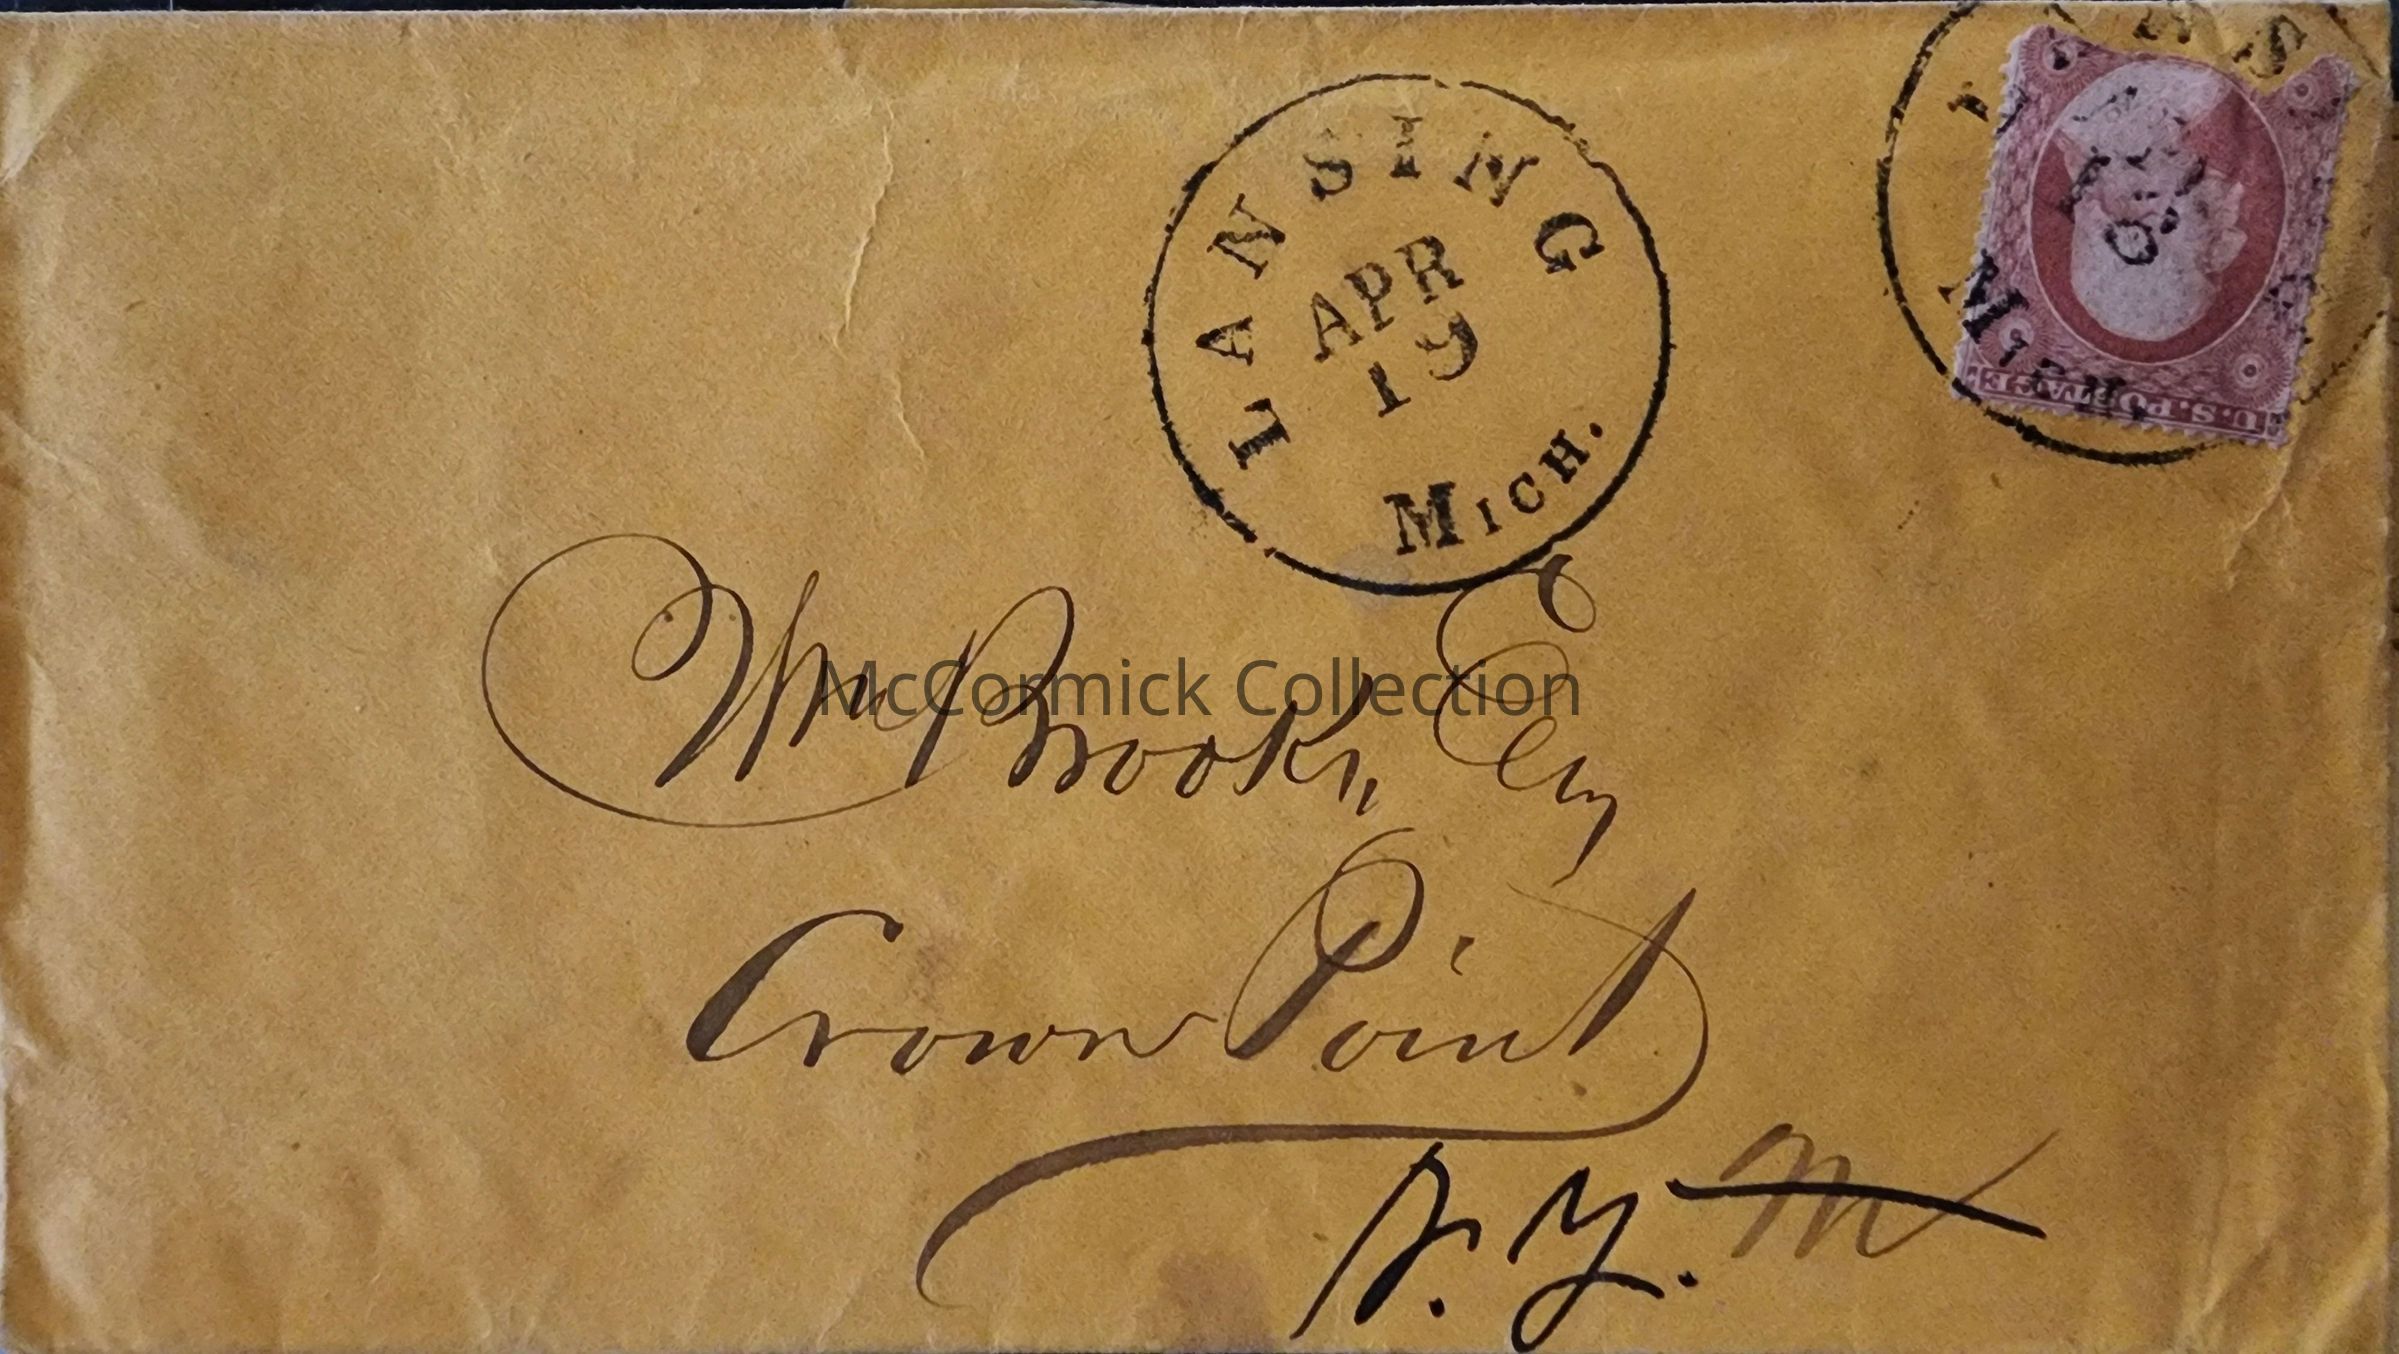 LANSING
APR
19
MICH.
U.S. POSTAGE
MICH
McCormick Collection
Wm Brooks, Esq
Crown Point
N. Y.